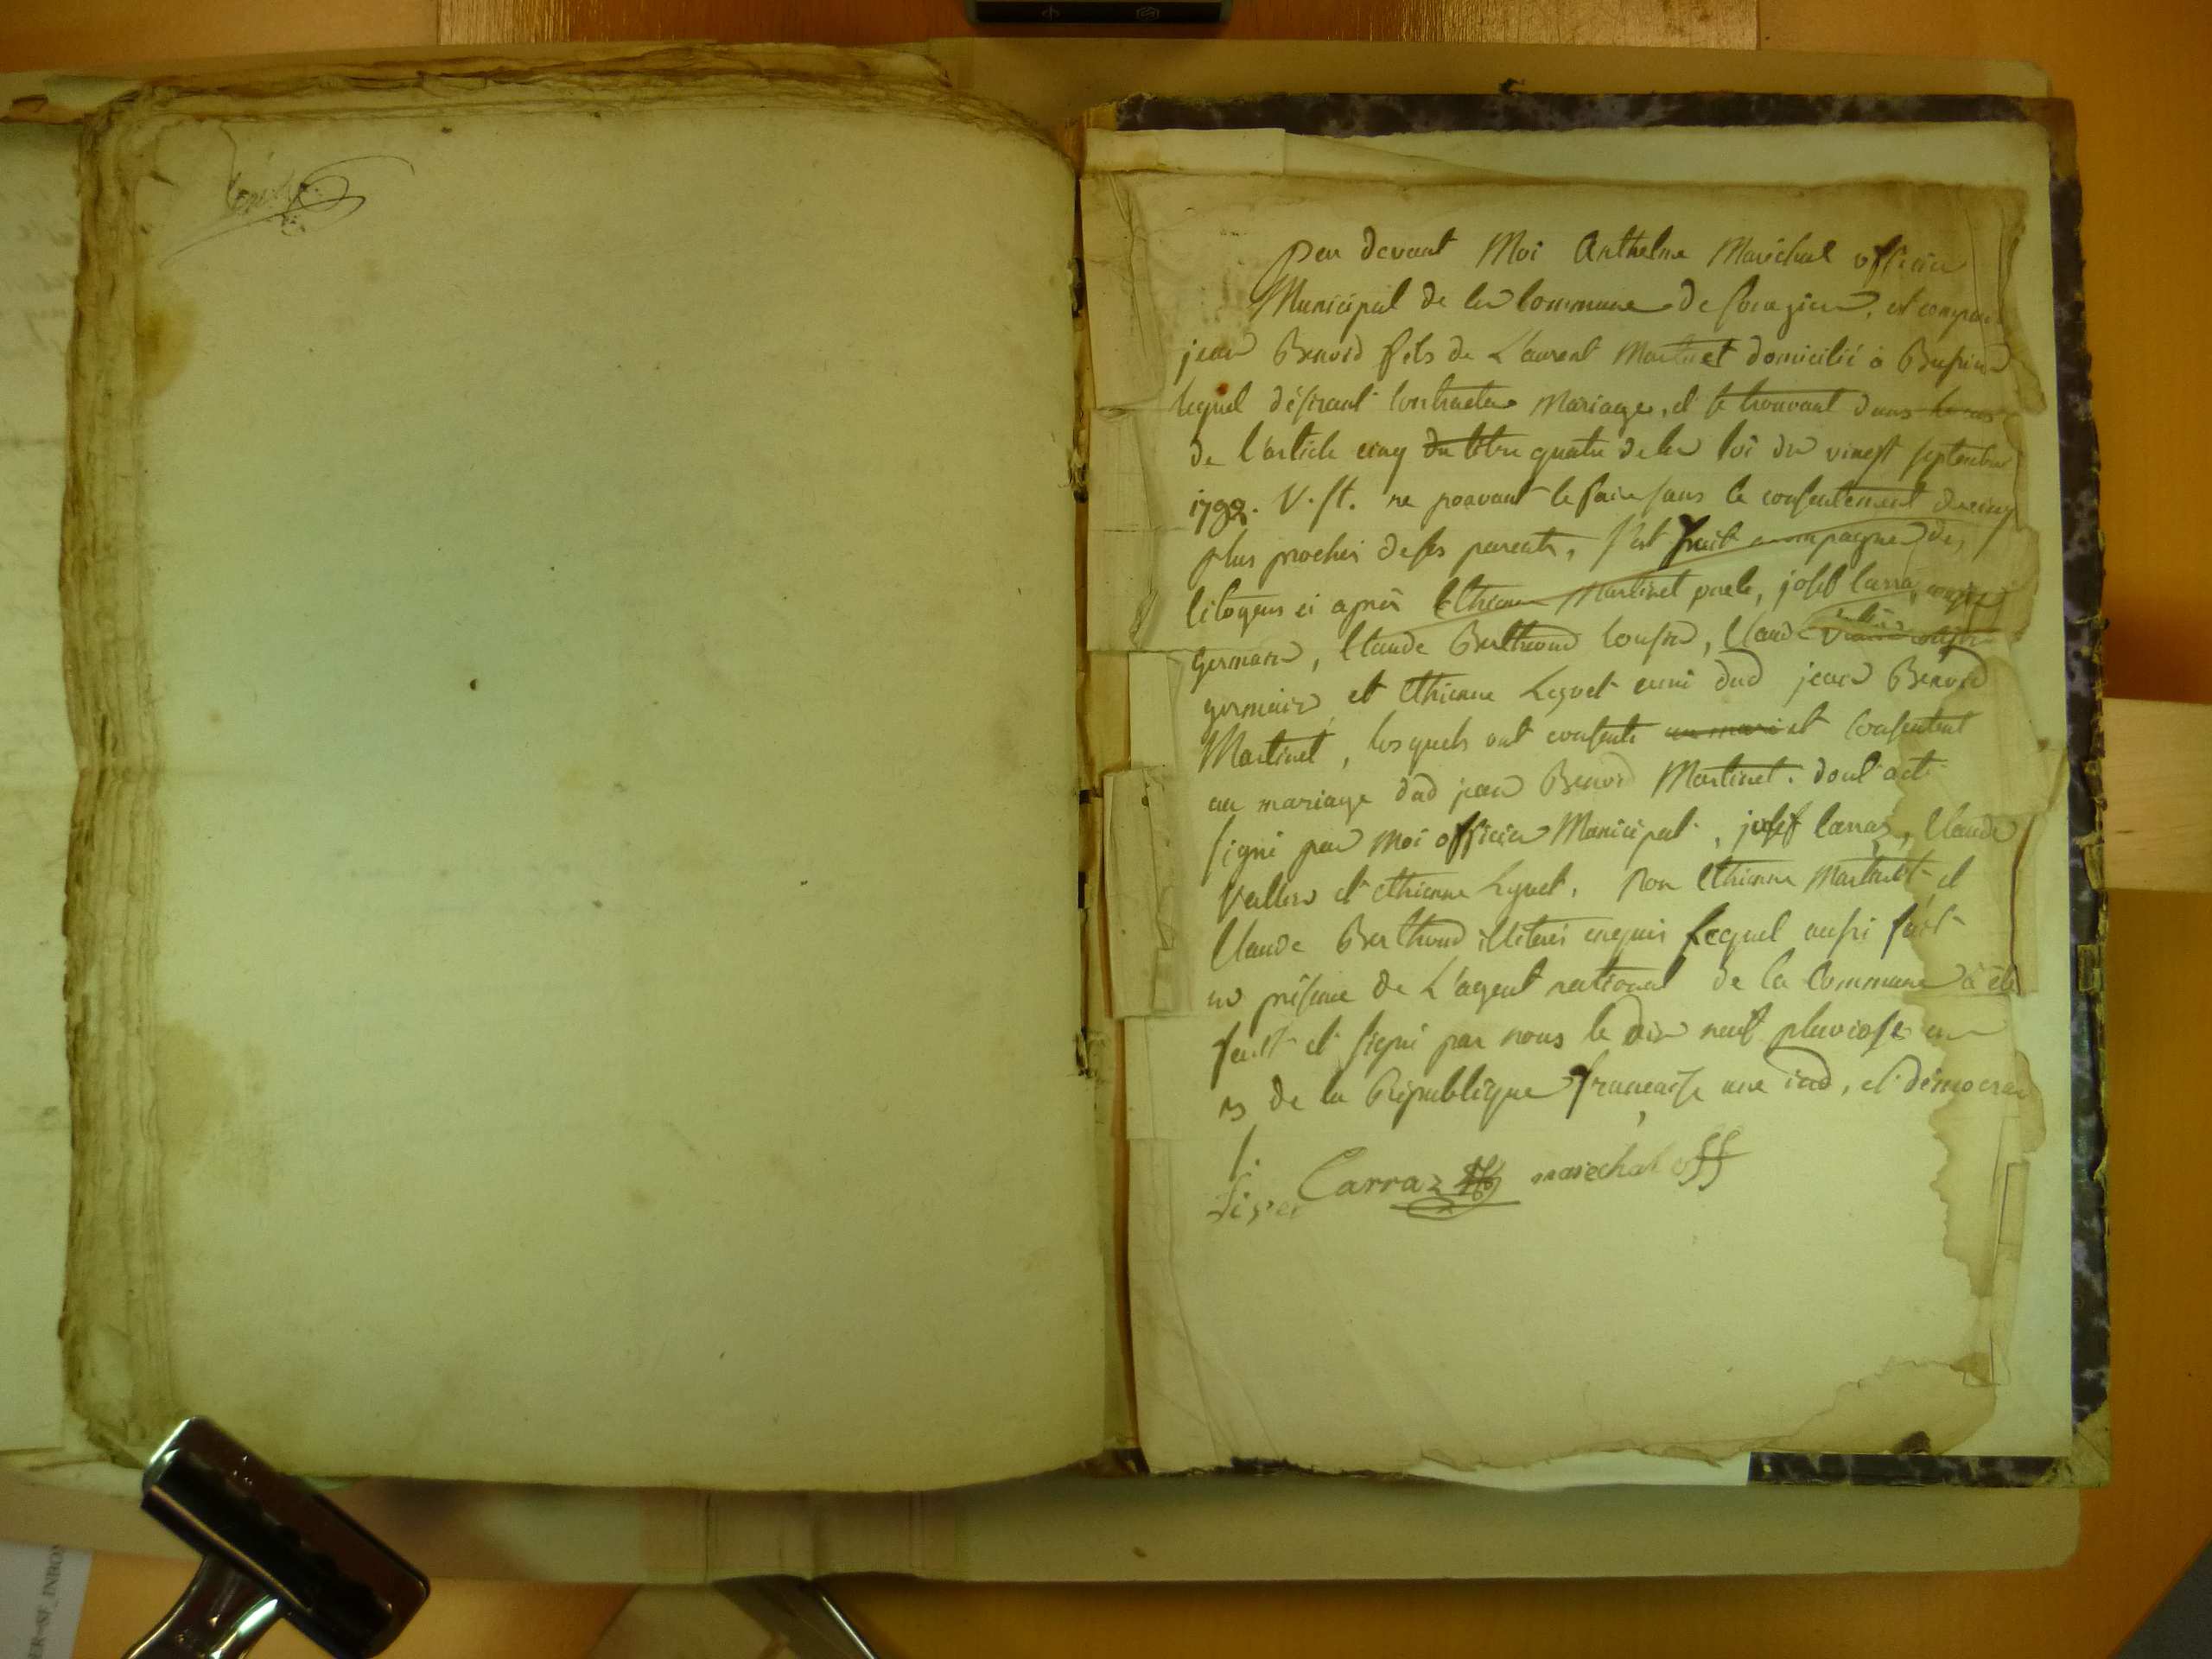 Par devant Moi Anthelme Maréchal officier
Municipal de la Commune de est compar
jean Benoid fils de Laurent Martinet domicilié à
lequel désirant Contracter Mariage, et se trouvant dans le cas
de l'article cinq du titre quatre de la loi du vingt septembre
1792. V. st. ne pouvant le faire sans le consentement de cinq
plus proches de ses parents, s'est fait accompagner des
Citoyens ci après Ethienne Martinet josef Carra,
germain, Claude Berthoud Cousin, Claude
germain et Ethienne Leguet ami dud jean Benoid
Martinet, lesquels ont consenti au mari et Consentent
au mariage dud jean Benoid Martinet. dont acte
signé par Moi officier Municipal, josef Carraz, Claude
et ethienne Leguet. Non Ethienne Martinet et
Claude Berthoud illiterés enquis lequel aussi fait
en présence de L'agent national de la Commune à été
fait et signé par nous le dix neuf pluviose an
de la République francaise une ind, et démocra
/.
Carraz maréchal off